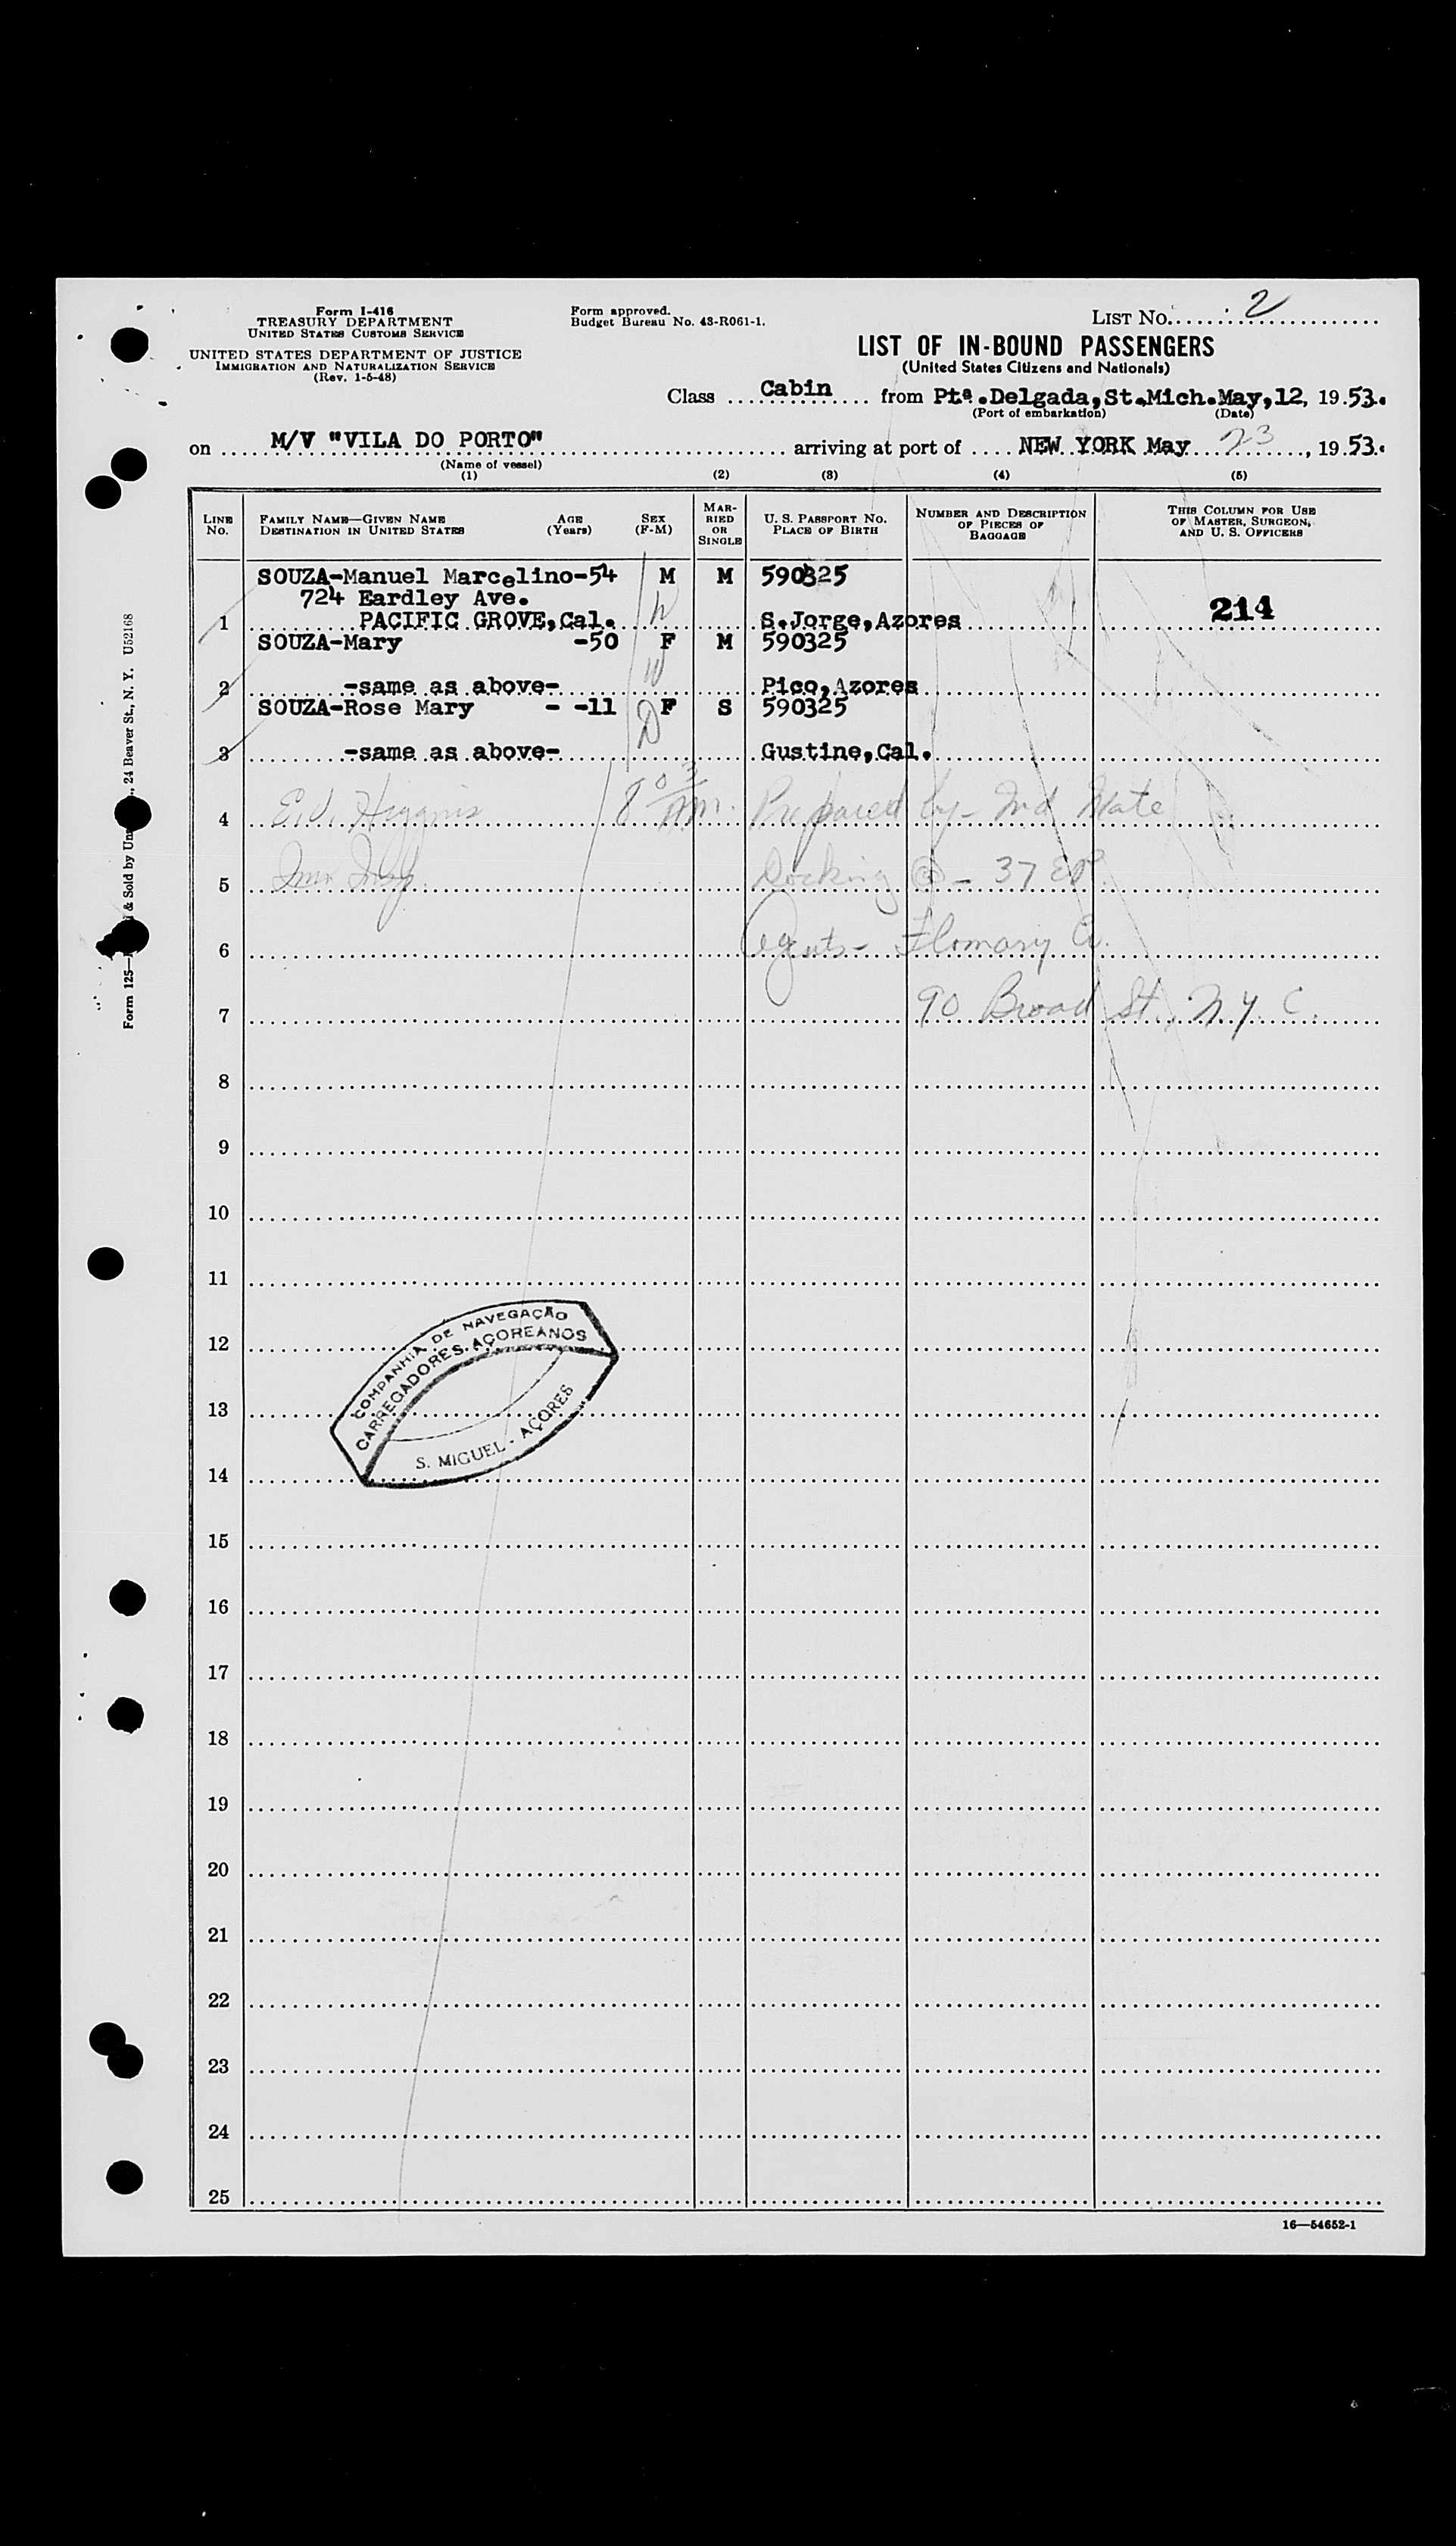 Form I-416
TREASURY DEPARTMENT
UNITED STATES CUSTOMS SERVICE
UNITED STATES DEPARTMENT OF JUSTICE
IMMIGRATION AND NATURALIZATION SERVICE
(Rev. 1-5-48)
Form approved.
Budget Bureau No. 43-R061-1.
LIST No. 2
LIST OF IN-BOUND PASSENGERS
(United States Citizens and Nationals)
Class Cabin from Pta.Delgada,St.Mich.May,12, 1953.
(Port of embarkation) (Date)
on M/V "VILA DO PORTO" arriving at port of NEW YORK May 23, 1953.
(Name of vessel)
(1) (2) (3) (4) (5)
LINE No. FAMILY NAME—GIVEN NAME DESTINATION IN UNITED STATES AGE (Years) SEX (F-M) MARRIED OR SINGLE U. S. PASSPORT No. PLACE OF BIRTH NUMBER AND DESCRIPTION OF PIECES OF BAGGAGE THIS COLUMN FOR USE OF MASTER, SURGEON, AND U. S. OFFICERS
SOUZA-Manuel Marcelino-54 M M 590325
724 Eardley Ave. 214
1 PACIFIC GROVE,Cal. S.Jorge,Azores
SOUZA-Mary -50 F M 590325
2 -same as above- W Pico,Azores
SOUZA-Rose Mary - -11 F S 590325
D
3 -same as above- Gustine,Cal.
4 Higgins Prepared by - 2nd Mate
5 Docking @ - 37
6 Agents -
7 90 Broad St., N.Y.C.
8
9
10
11
12
13
14
COMPANHIA DE NAVEGAÇÃO
CARREGADORES AÇOREANOS
S. MIGUEL - AÇORES
15
16
17
18
19
20
21
22
23
24
25
16—54652-1
Form 125— & Sold by , 24 Beaver St., N. Y. U52168